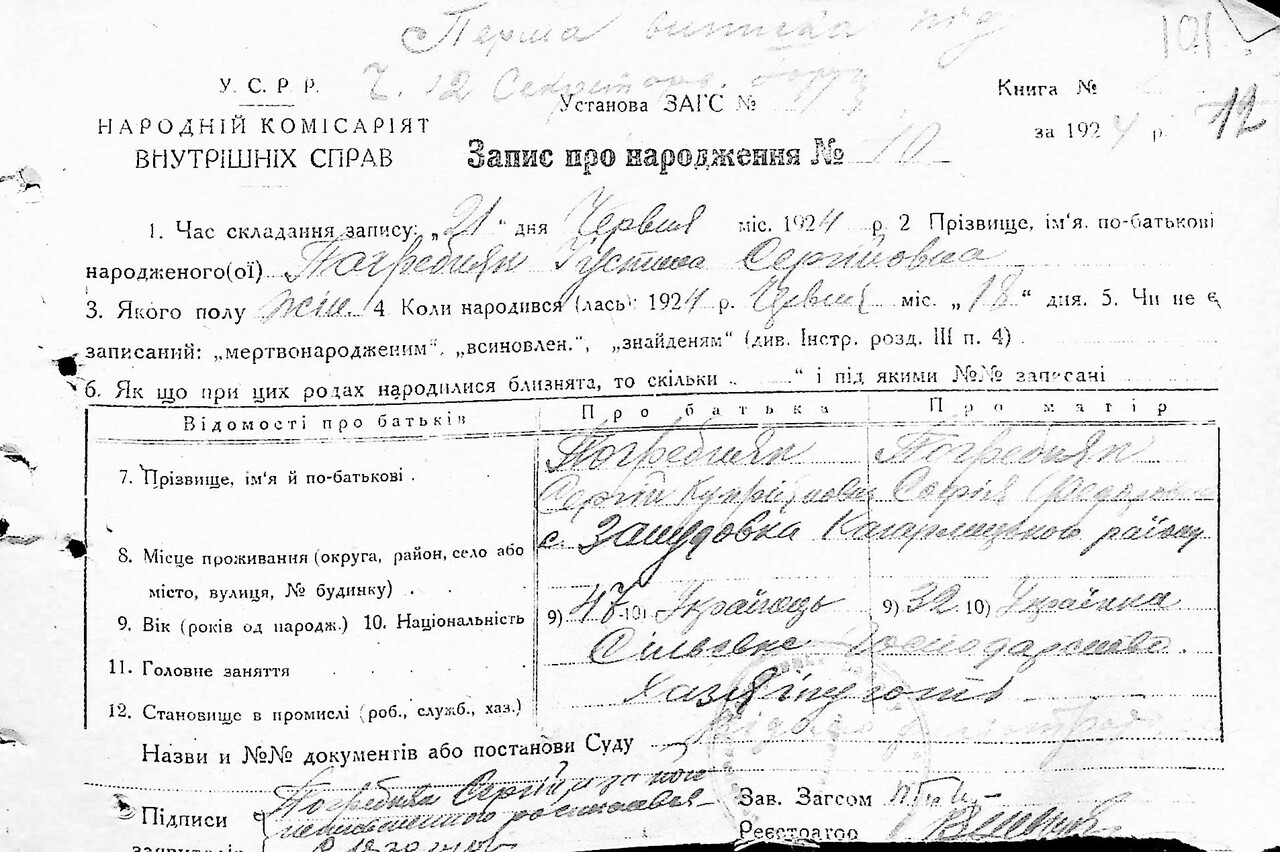 Перша виписка під
Ч. 12 Секретар
101
У. С. Р. Р.
НАРОДНІЙ КОМІСАРІЯТ
ВНУТРІШНІХ СПРАВ
Установа ЗАГС №
Книга №
за 1924 р.
12
Запис про народження № 10
1. Час складання запису: „21“ дня Червня міс. 1924 р. 2 Прізвище, ім'я. по-батькові
народженого(ої) Погребняк Устина Сергійовна
3. Якого полу жін. 4 Коли народився (лась) 1924 р. Червня міс. „18“ дня. 5. Чи не є
записаний: „мертвонародженим“, „всиновлен.“, „знайденям“ (див. Інстр. розд. III п. 4)
6. Як що при цих родах народилися близнята, то скільки „ “ і під якими №№ записані
Відомості про батьків Про батька Про матір
7. Прізвище, ім'я й по-батькові Погребняк Погребняк
Сергій Софія
8. Місце проживання (округа, район, село або с. Кагарлицького району
місто, вулиця, № будинку)
9. Вік (років од народж.) 10. Національність 9) 47 10) Українець 9) 32 10) Українка
11. Головне заняття Сільське Господарство.
12. Становище в промислі (роб., служб., хаз.)
Назви и №№ документів або постанови Суду
Підписи Погребняк Сергій а за його
неписьменного росписався
заявителів
Зав. Загсом
Реєстратор